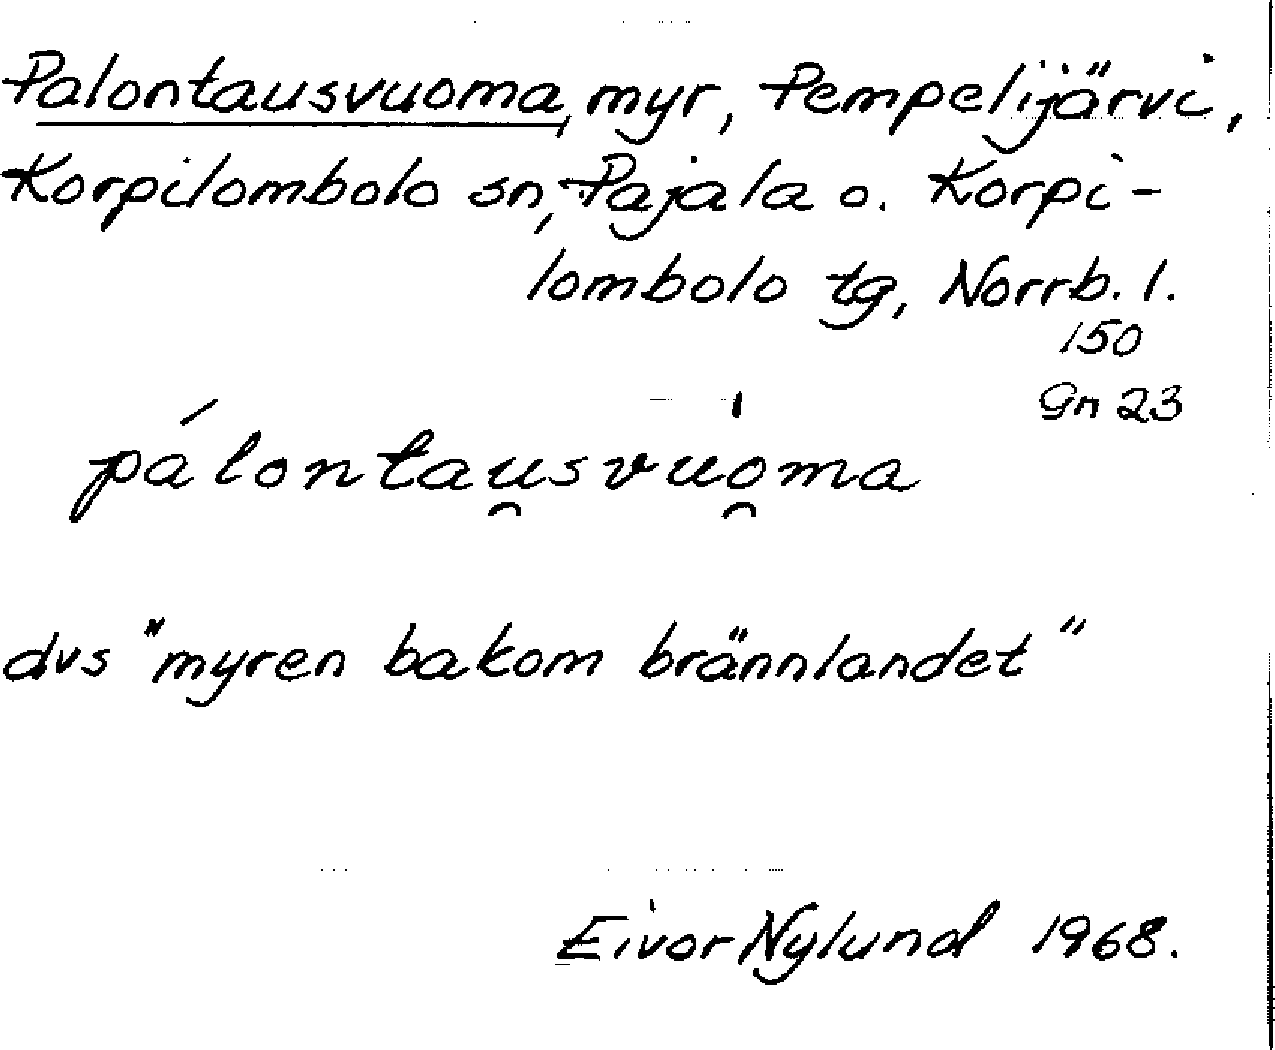 Palontausvuoma, myr, Pempelijärvi,
Korpilombolo sn, Pajala o. Korpi-
lombolo tg, Norrb. l.
150
Gn 23
pálontau̯svu̍o̯ma
dvs "myren bakom brännlandet"
Eivor Nylund 1968.